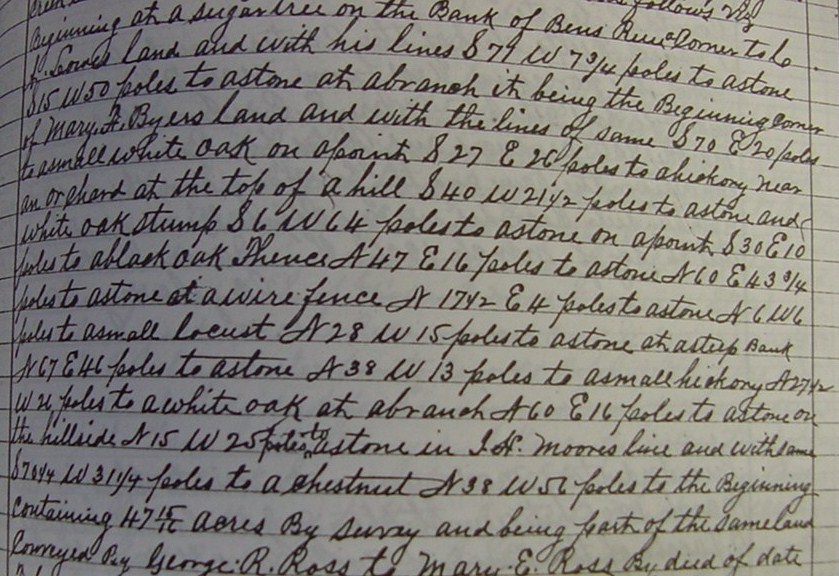 follows viz
Beginning at a sugar tree on the Bank of Bens Run Corner to
Lowes land and with his lines S 79 W 7 3/4 poles to astone
S15 W50 poles to astone at abranch it being the Beginning Corner
of Mary Byers land and with the lines of same S70 E20 poles
to asmall white oak on apoint S 27 E 26 poles to ahickory near
an orchard at the top of a hill S40 W21 1/2 poles to astone and
white oak stump S6 W64 poles to astone on apoint S30 E10
poles to ablack oak Thence N47 E16 poles to astone N60 E43 3/4
poles to astone at awire fence N 17 1/2 E4 poles to astone N6 W6
poles to asmall locust N28 W15 poles to astone at asteep Bank
N67 E46 poles to astone N38 W13 poles to asmall hickory N27 1/2
W26 poles to awhite oak at abranch N60 E16 poles to astone on
the hillside N15 W25 poles to astone in Moores line and with same
W 31 1/4 poles to a chestnut N38 W56 poles to the Beginning
Containing 47 acres By survay and being part of the same land
Conveyed By George R. Ross to Mary E. Ross By deed of date